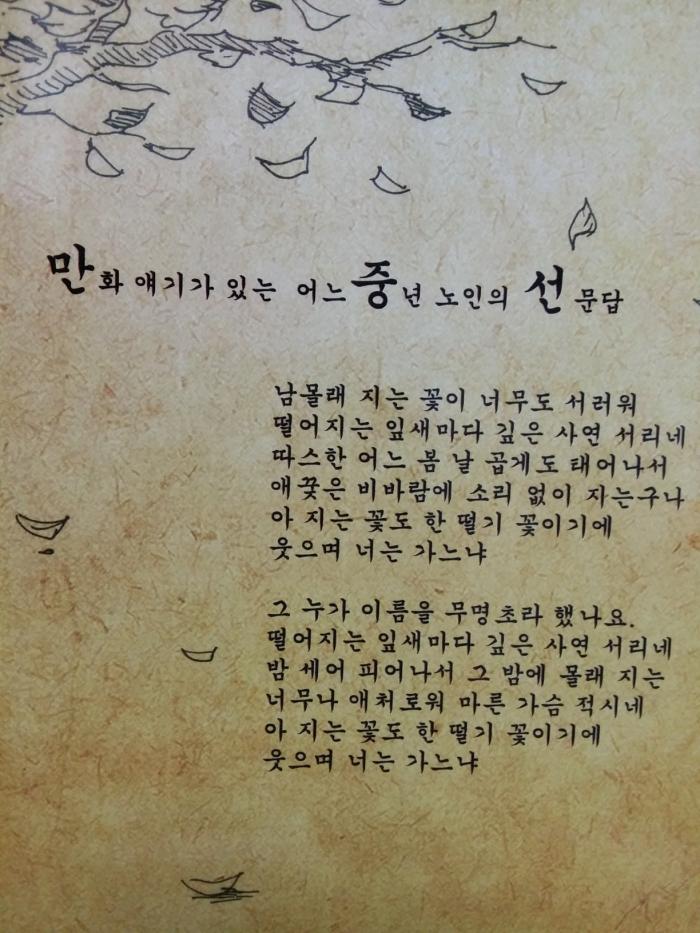 만화 얘기가 있는 어느 중년 노인의 선문답
남몰래 지는 꽃이 너무도 서러워
떨어지는 잎새마다 깊은 사연 서리네
따스한 어느 봄 날 곱게도 태어나서
애꿎은 비바람에 소리 없이 지는구나
아 지는 꽃도 한 떨기 꽃이기에
웃으며 너는 가느냐
그 누가 이름을 무명초라 했나요.
떨어지는 잎새마다 깊은 사연 서리네
밤 세어 피어나서 그 밤에 몰래 지는
너무나 애처로워 마른 가슴 적시네
아 지는 꽃도 한 떨기 꽃이기에
웃으며 너는 가느냐